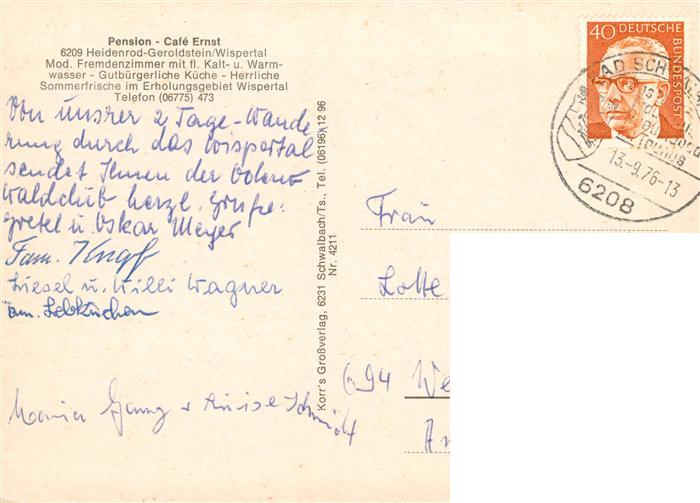 Pension - Café Ernst
6209 Heidenrod-Geroldstein/Wispertal
Mod. Fremdenzimmer mit fl. Kalt- u. Warm-
wasser - Gutbürgerliche Küche - Herrliche
Sommerfrische im Erholungsgebiet Wispertal
Telefon (06775) 473
Von unsrer 2 Tage-Wande
rung durch das Wispertal
sendet Ihnen der Odenw
waldclub herzl. Grüße:
Gretel u. Oskar Meyer
Fam. Knapf
Liesel u. Willi Wagner
Fam. Lebkuchen
Maria Gang + Luise Schmidt
Korr's Großverlag, 6231 Schwalbach/Ts., Tel. (06196) 12 96
Nr. 4211
40 DEUTSCHE BUNDESPOST
BAD SCHWAL
Taunus
13.-9.76-13
6208
Frau
Lotte
694 We